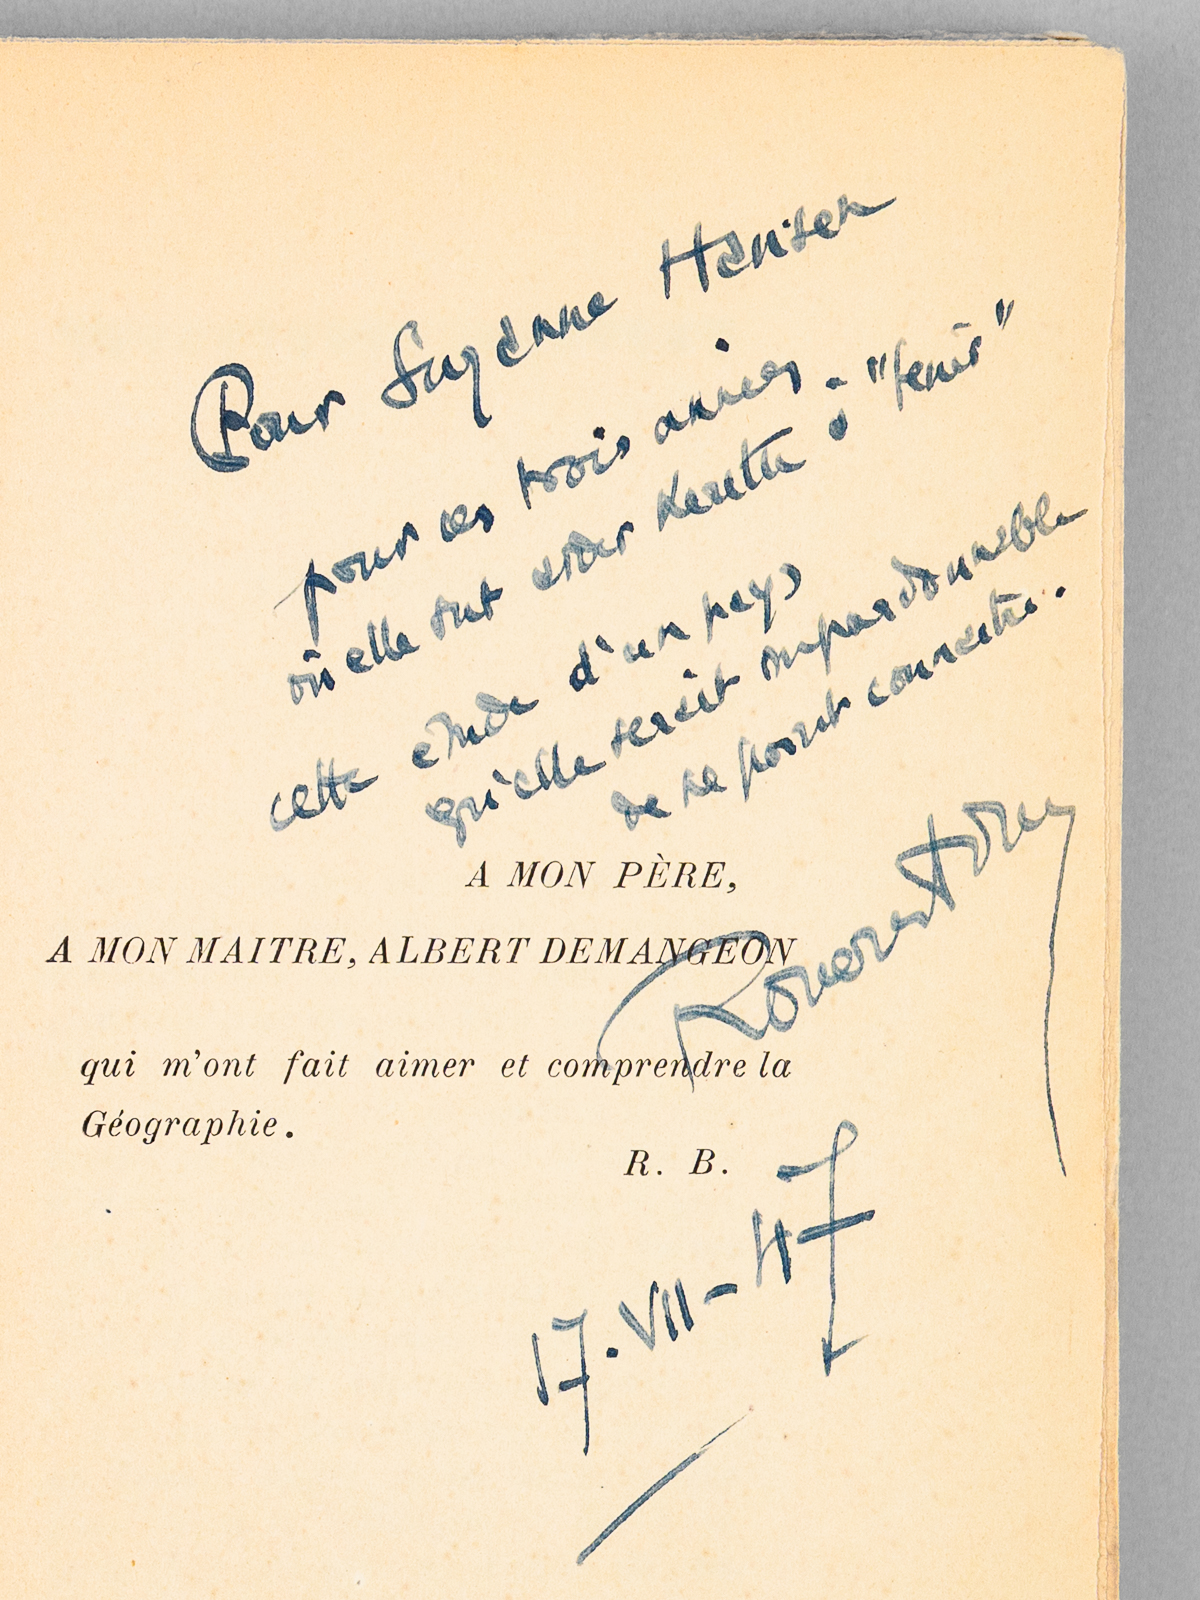 Pour Suzanne Hansen
pour ces trois années
où elle sut aider Kerette à "tenir"
cette étude d'un pays
qu'elle serait impardonnable
de ne point connaitre.
A MON PÈRE,
A MON MAITRE, ALBERT DEMANGEON
qui m'ont fait aimer et comprendre la
Géographie.
R. B.
17.VII-47